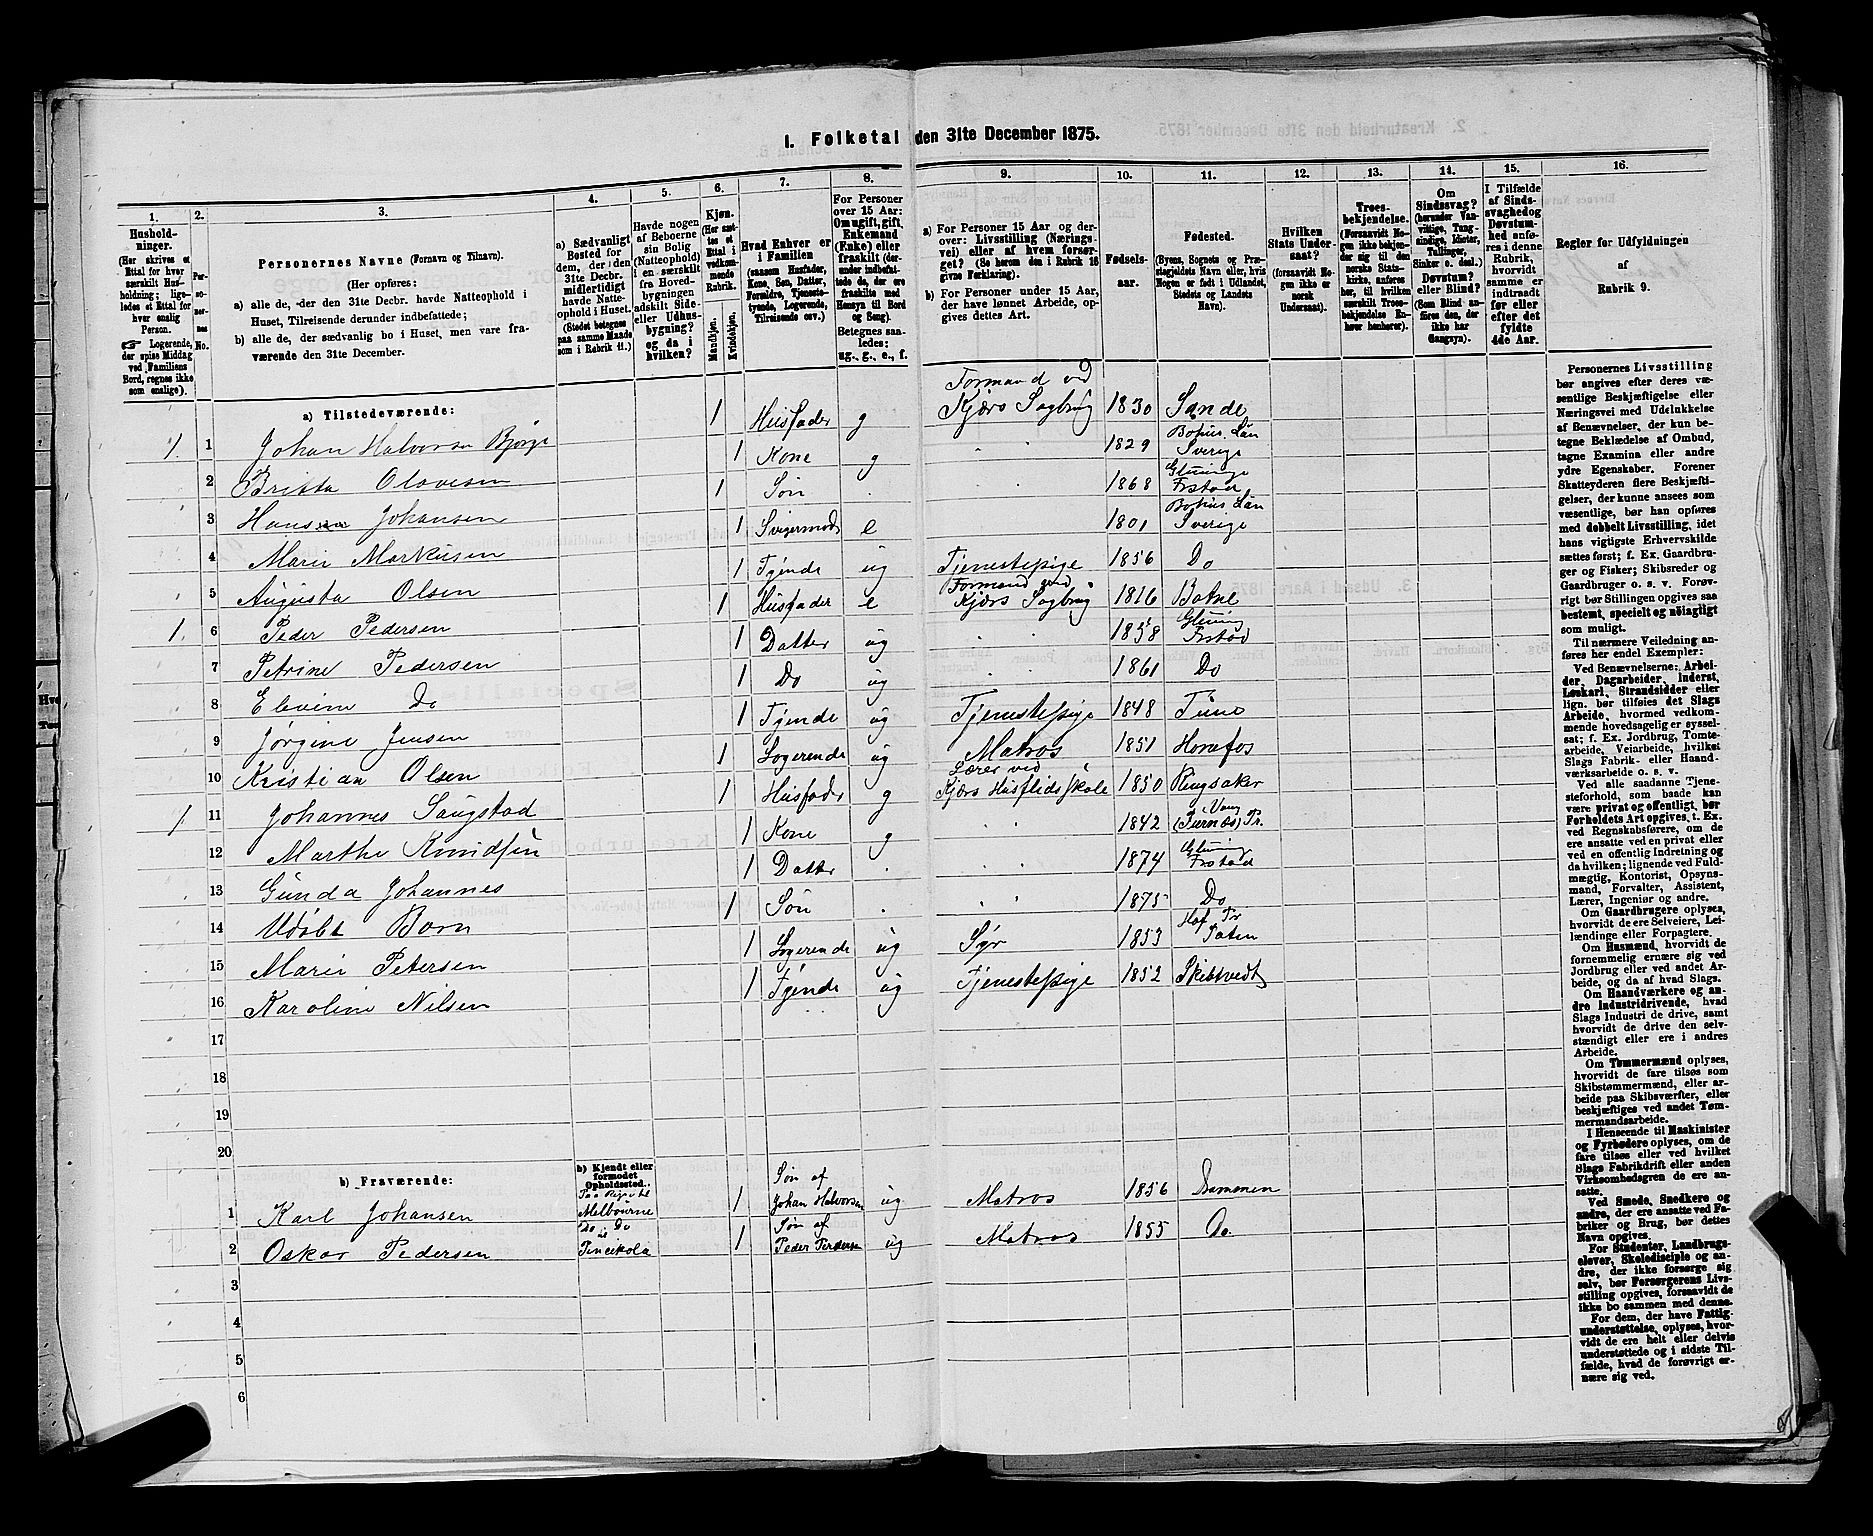 1. Folketal den 31te December 1875.
1. 2. 3. 4. 5. 6. 7. 8. 9. 10. 11. 12. 13. 14. 15. 16.
Hushold-
ninger.
(Her skrives et
Ettal for hver
særskilt Hus-
holdning; lige-
ledes et Ettal for
hver enslig
Person.
☞ Logerende,
der spise Middag
ved Familiens
Bord, regnes ikke
som enslige).
Per-
so-
ner-
nes
No.
Personernes Navne (Fornavn og Tilnavn).
(Her opføres:
a) alle de, der den 31te Decbr. havde Natteophold i
Huset, Tilreisende derunder indbefattede;
b) alle de, der sædvanlig bo i Huset, men vare fra-
værende den 31te December.
a) Sædvanligt
Bosted for
dem, der den
31te Decbr.
midlertidigt
havde Natte-
ophold i Huset.
(Stedet betegnes
paa samme Maade
som i Rubrik 11.)
Havde nogen
af Beboerne
sin Bolig
(Natteophold)
i en særskilt
fra Hoved-
bygningen
adskilt Side-
eller Udhus-
bygning?
og da i
hvilken?
Kjøn.
(Her sæt-
tes et
Ettal i
vedkom-
mende
Rubrik.
Mandkjøn.
Kvindekjøn.
Hvad Enhver er
i Familien
(saasom Husfader,
Kone, Søn, Datter,
Forældre, Tjeneste-
tyende, Logerende,
Tilreisende osv.)
For Personer
over 15 Aar:
Om ugift, gift,
Enkemand
(Enke) eller
fraskilt (der-
under indbefat-
tede de, der ere
fraskilte med
Hensyn til Bord
og Seng).
Betegnes saa-
ledes:
ug., g., e., f.
a) For Personer 15 Aar og der-
over: Livsstilling (Nærings-
vei) eller af hvem forsør-
get? (Se herom den i Rubrik 16
givne Forklaring).
b) For Personer under 15 Aar,
der have lønnet Arbeide, op-
gives dettes Art.
Fødsels-
aar.
Fødested.
(Byens, Sognets og Præ-
stegjeldets Navn eller, hvis
Nogen er født i Udlandet,
Stedets og Landets
Navn).
Hvilken
Stats Under-
saat?
(forsaavidt No-
gen ikke er
norsk
Undersaat).
Troes-
bekjendelse.
(Forsaavidt No-
gen ikke bekjen-
der sig til den
norske Stats-
kirke, anføres
her, til hvilken
særskilt Troes-
bekjendelse En-
hver henhører).
Om
Sindssvag?
(herunder Van-
vittige, Tung-
sindige, Idioter,
Tullinger,
Sinker o. desl.)
Døvstum?
eller Blind?
(Som Blind an-
føres den, der
ikke har
Gangsyn).
I Tilfælde
af Sinds-
svaghed og
Døvstum-
hed anfø-
res i denne
Rubrik,
hvorvidt
samme er
indtraadt
før eller
efter det
fyldte
4de Aar.
Regler for Udfyldningen
af
Rubrik 9.
a) Tilstedeværende:
1 1 Johan Halvorsen 1 Husfader g Formand ved Kjærs Sagbrug 1830 Sande
2 Britta Olavesen 1 Kone g 1829 Bohus Län Sverige
3 Hans Johansen 1 Søn 1868 Frstad
4 Marie Markusen 1 Svigermod e 1801 Bohus Län Sverige
5 Augusta Olsen 1 Tjende ug Tjenestepige 1856 Do
1 6 Peder Pedersen 1 Husfader e Formand ved Kjærs Sagbrug 1816 Botne
7 Petrine Pedersen 1 Datter ug 1858 Glæming Frstad
8 Elevine Do 1 Do ug 1861 Do
9 Jørgine Jensen 1 Tjende ug Tjenestepige 1848 Tune
10 Kristian Olsen 1 Logerende ug Matros 1851 Hønefos
1 11 Johannes Saugstad 1 Husfader g Lærer ved Kjærs Husflidsskole 1850 Ringsaker
12 Marthe Knudsen 1 Kone g 1842 Vang (Furnæs) Pr.
13 Gunda Johannes 1 Datter 1874 Glæming Frstad
14 Udøbt Barn 1 Søn 1875 Do
15 Marie Petersen 1 Logerende ug Syr 1853 Hof Pr Toten
16 Karoline Nilsen 1 Tjende ug Tjenestepige 1852 Skibtvedt
17
18
19
20
b) Fraværende:
b) Kjendt eller
formodet
Opholdssted.
1 Karl Johansen Paa Reise til Melbourne 1 Søn af Johan Halvorsen ug Matros 1856 Dammen
2 Oskar Pedersen Do Do til Pincikola 1 Søn af Peder Pedersen ug Matros 1855 Do.
3
4
5
6
Personernes Livsstilling
bør angives efter deres væ-
sentlige Beskjæftigelse eller
Næringsvei med Udelukkelse
af Benævnelser, der kun be-
tegne Beklædelse af Ombud,
tagne Examina eller andre
ydre Egenskaber. Forener
Skatteyderen flere Beskjæfti-
gelser, der kunne ansees som
væsentlige, bør han opføres
med dobbelt Livsstilling, idet
hans vigtigste Erhvervskilde
sættes først; f. Ex. Gaardbru-
ger og Fisker; Skibsreder og
Gaardbruger o. s. v. Forøv-
rigt bør Stillingen opgives saa
bestemt, specielt og nöiagtigt
som muligt.
Til nærmere Veiledning an-
føres her endel Exempler:
Ved Benævnelserne: Arbei-
der, Dagarbeider, Inderst,
Løskarl, Strandsidder eller
lign. bør tilføies det Slags
Arbeide, hvormed vedkom-
mende hovedsagelig er syssel-
sat; f. Ex. Jordbrug, Tomte-
arbeide, Veiarbeide, hvilket
Slags Fabrik- eller Haand-
værksarbeide o. s. v.
Ved alle saadanne Tjene-
steforhold, som baade kan
være privat og offentligt, bør
Forholdets Art opgives, t. Ex.
ved Regnskabsførere, om de
ere ansatte ved en privat eller
ved en offentlig Indretning og
da hvilken; lignende ved Fuld-
mægtig, Kontorist, Opsyns-
mand, Forvalter, Assistent,
Lærer, Ingeniør og andre.
Om Gaardbrugere oplyses,
hvorvidt de ere Selveiere, Lei-
lændinge eller Forpagtere.
Om Husmænd, hvorvidt de
fornemmelig ernære sig ved
Jordbrug eller ved andet Ar-
beide, og da af hvad Slags.
Om Haandværkere og an-
dre Industridrivende, hvad
Slags Industri de drive, samt
hvorvidt de drive den selv-
stændigt eller ere i andres
Arbeide.
Om Tømmermænd oplyses,
hvorvidt de fare tilsøs som
Skibstømmermænd, eller ar-
beide paa Skibsværfter, eller
beskjæftiges ved andet Tøm-
mermandsarbeide.
I Henseende til Maskinister
og Fyrbødere oplyses, om de
fare tilsøs eller ved hvilket
Slags Fabrikdrift eller anden
Virksomhedsgren de ere an-
satte.
Ved Smede, Snedkere og
andre, der ere ansatte ved Fa-
briker og Brug, bør dettes
Navn opgives.
For Studenter, Landbrugs-
elever, Skoledisciple og an-
dre, der ikke forsørge sig
selv, bør Forsørgerens Livs-
stilling opgives, forsaavidt de
ikke bo sammen med denne.
For dem, der have Fattig-
understøttelse, oplyses, hvor-
vidt de ere helt eller delvis
understøttede og i sidste Til-
fælde, hvad de forøvrigt er-
nære sig ved.